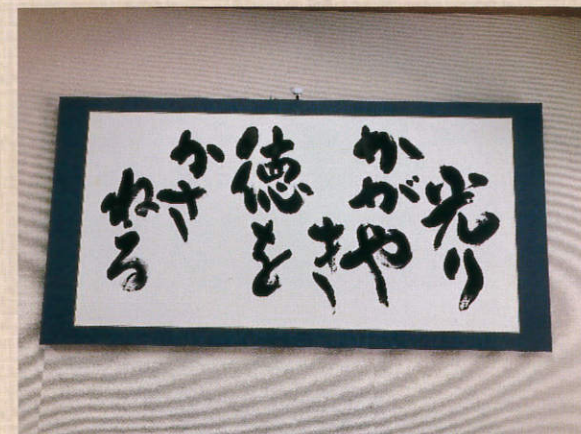 光り
かがや
き
徳を
かさ
ねる